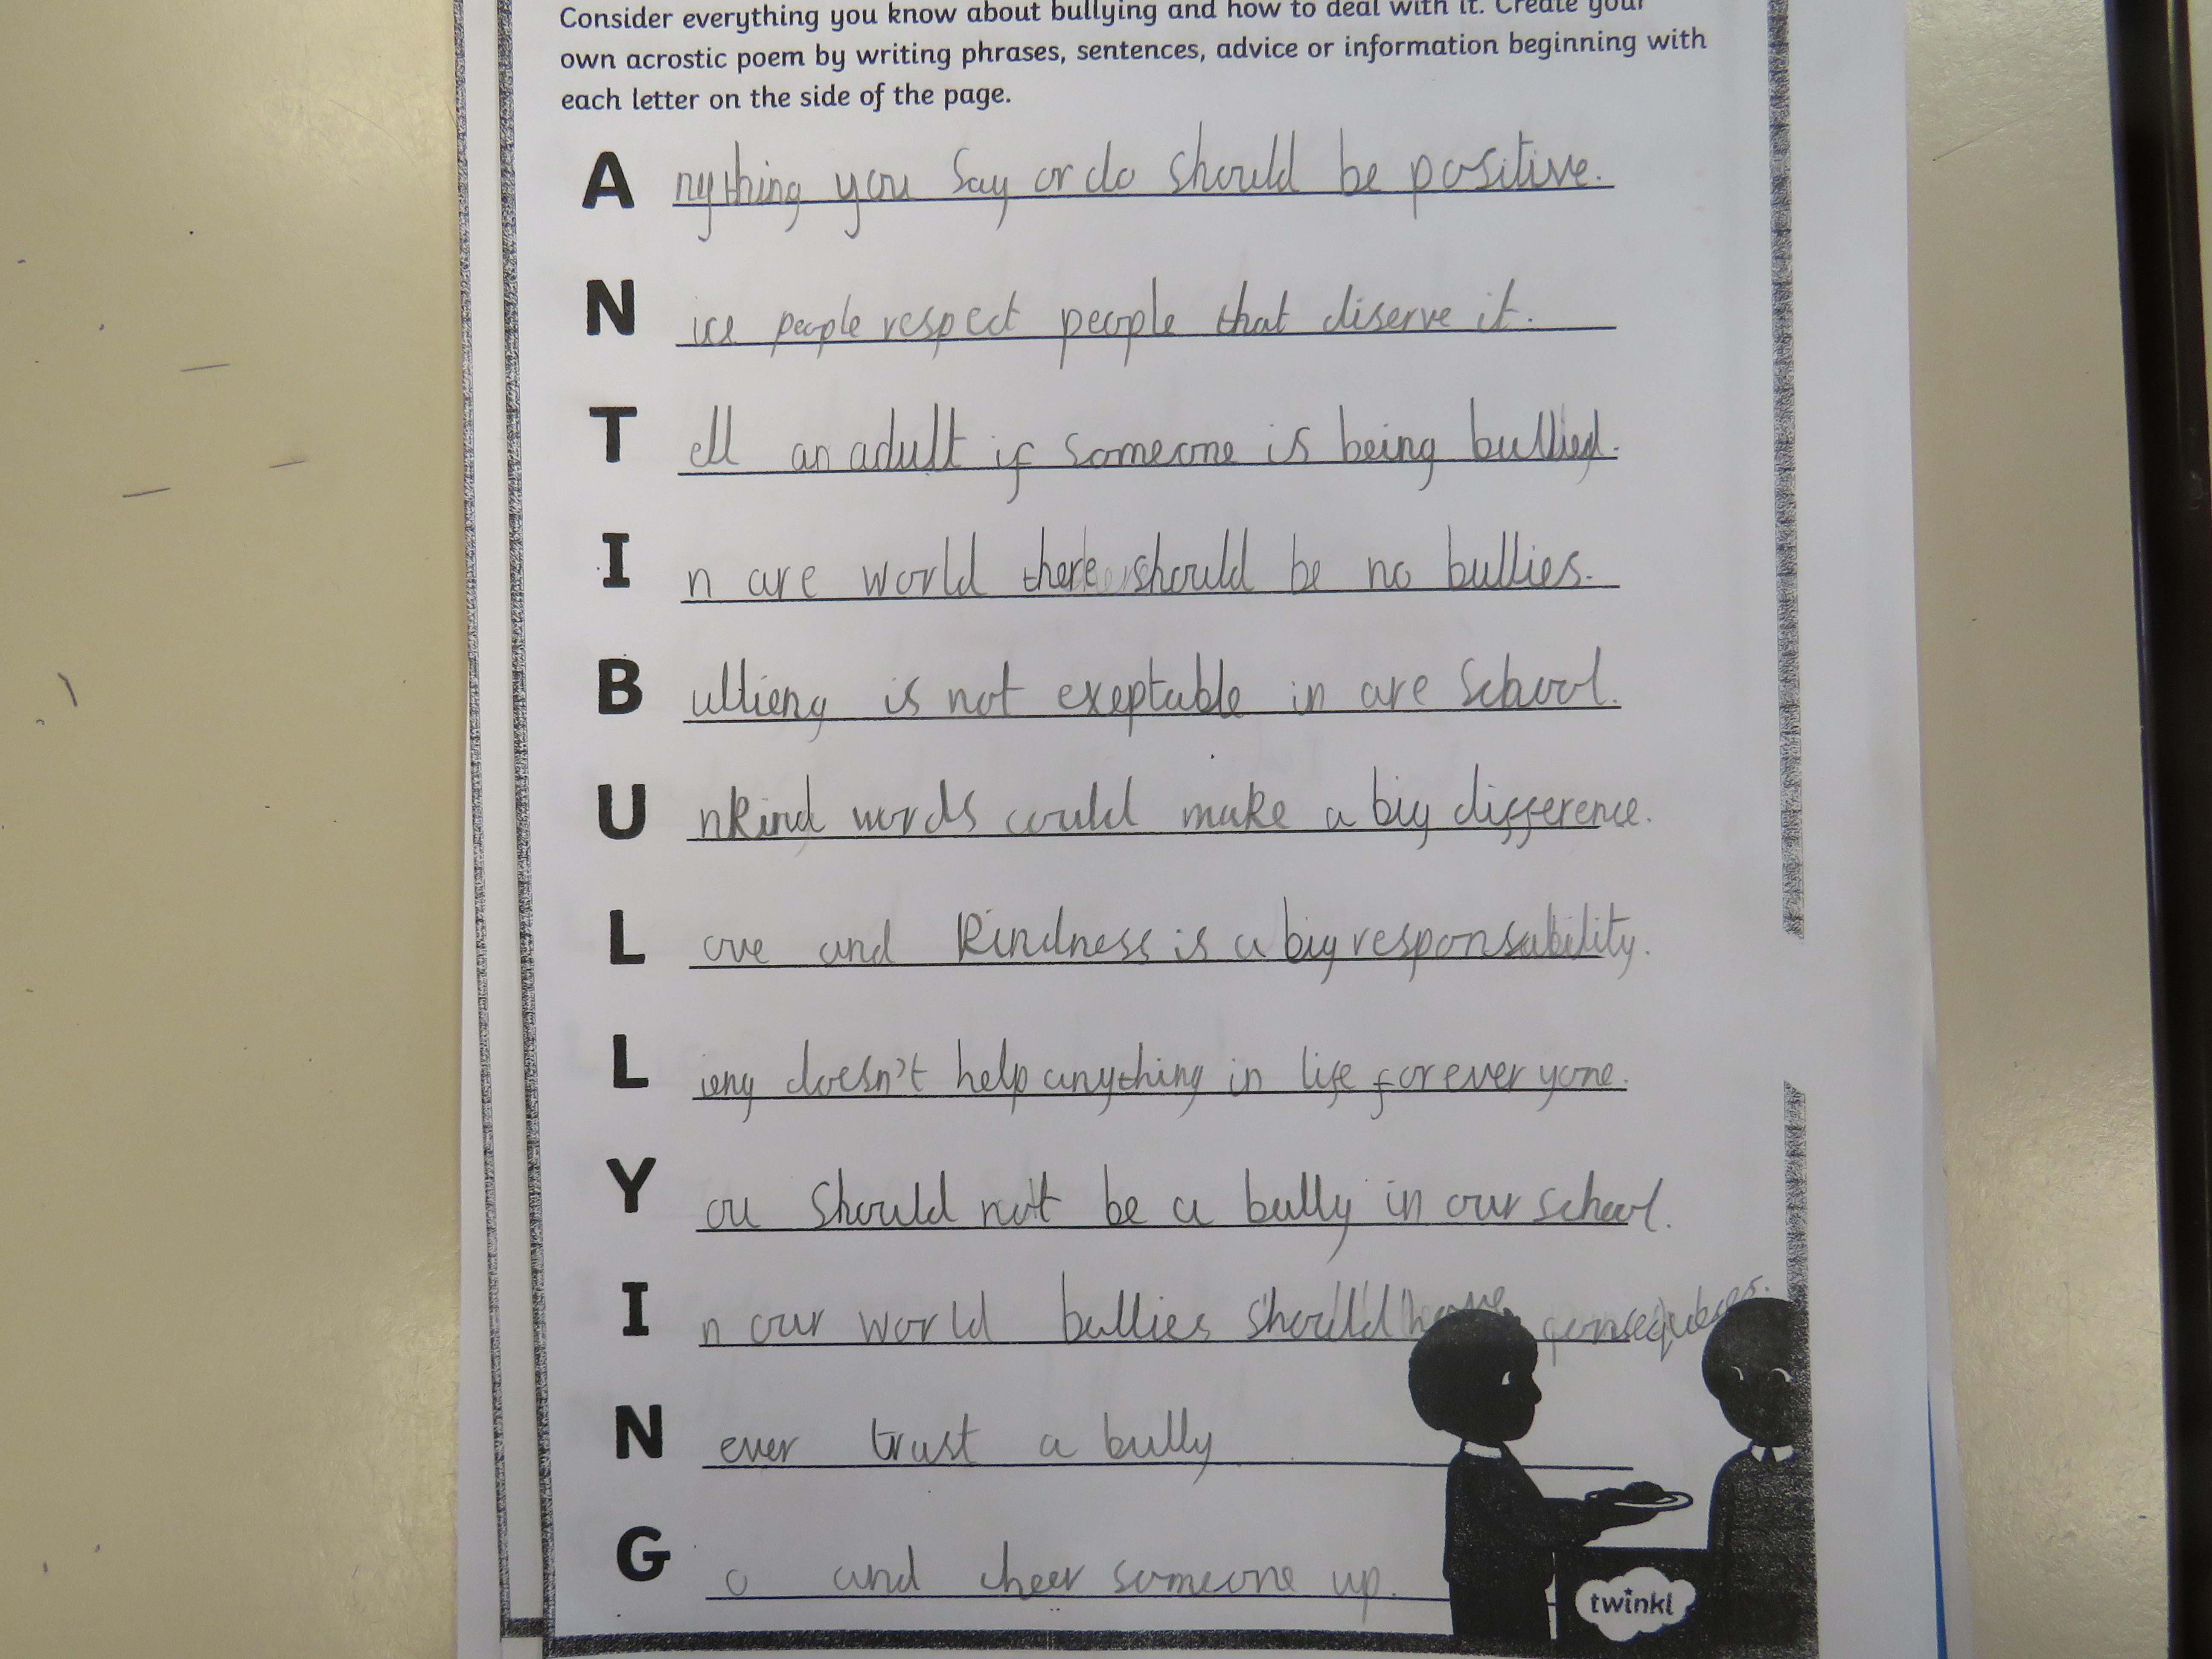 Consider everything you know about bullying and how to deal with it. Create your
own acrostic poem by writing phrases, sentences, advice or information beginning with
each letter on the side of the page.
Anything you say or do should be positive.
Nice people respect people that diserve it.
Tell an adult if someone is being bullied.
In are world there should be no bullies.
Bullieng is not exeptable in are school.
Unkind words could make a big difference.
Love and kindness is a big responsability.
Lieng doesn't help anything in life for everyone.
You should not be a bully in our school.
In our world bullies should have
Never trust a bully
Go and cheer someone up.
twinkl